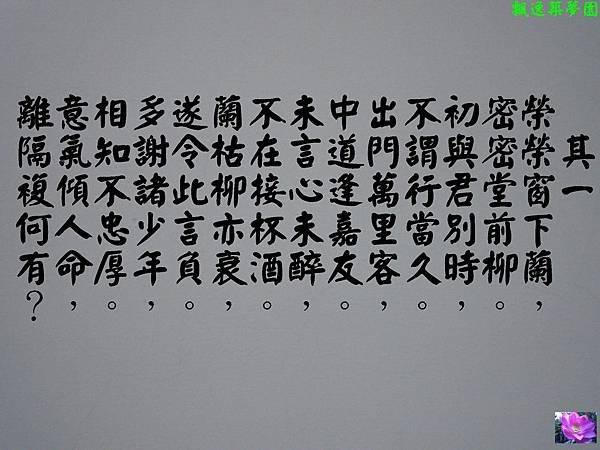 飄逸築夢園
其一
榮榮窗下蘭，
密密堂前柳。
初與君別時，
不謂行當久。
出門萬里客，
中道逢嘉友。
未言心未醉，
不在接杯酒。
蘭枯柳亦衰，
遂令此言負。
多謝諸少年，
相知不忠厚。
意氣傾人命，
離隔複何有？